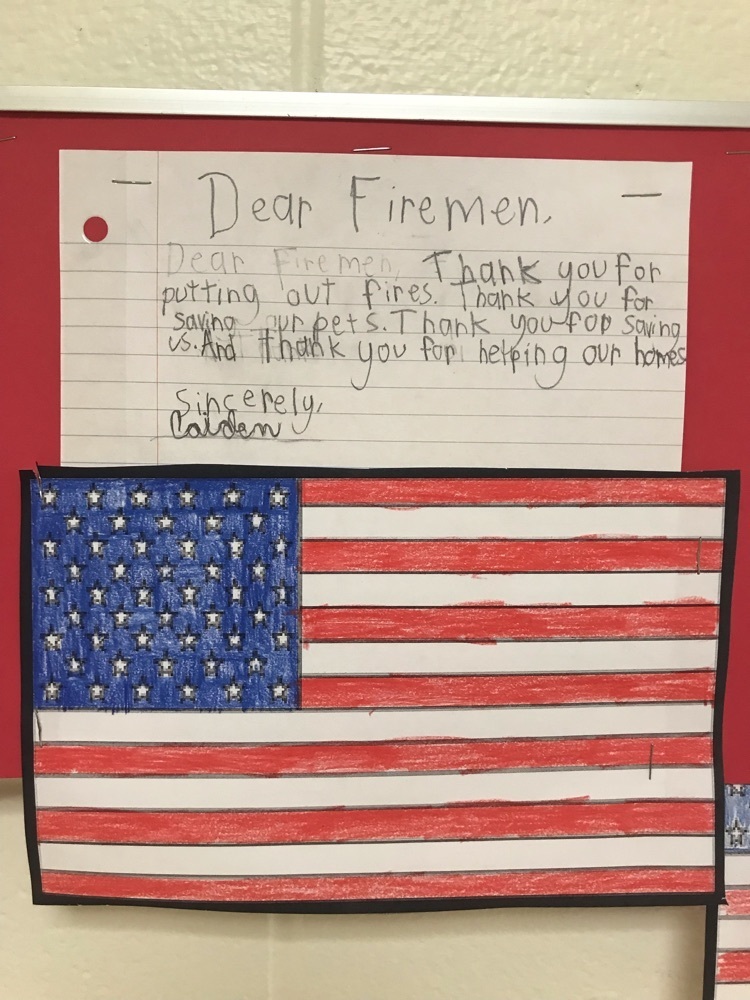 Dear Firemen,
Dear Firemen, Thank you for
putting out fires. Thank you for
saving our pets. Thank you for saving
us. And thank you for helping our homes
Sincerely,
Caiden